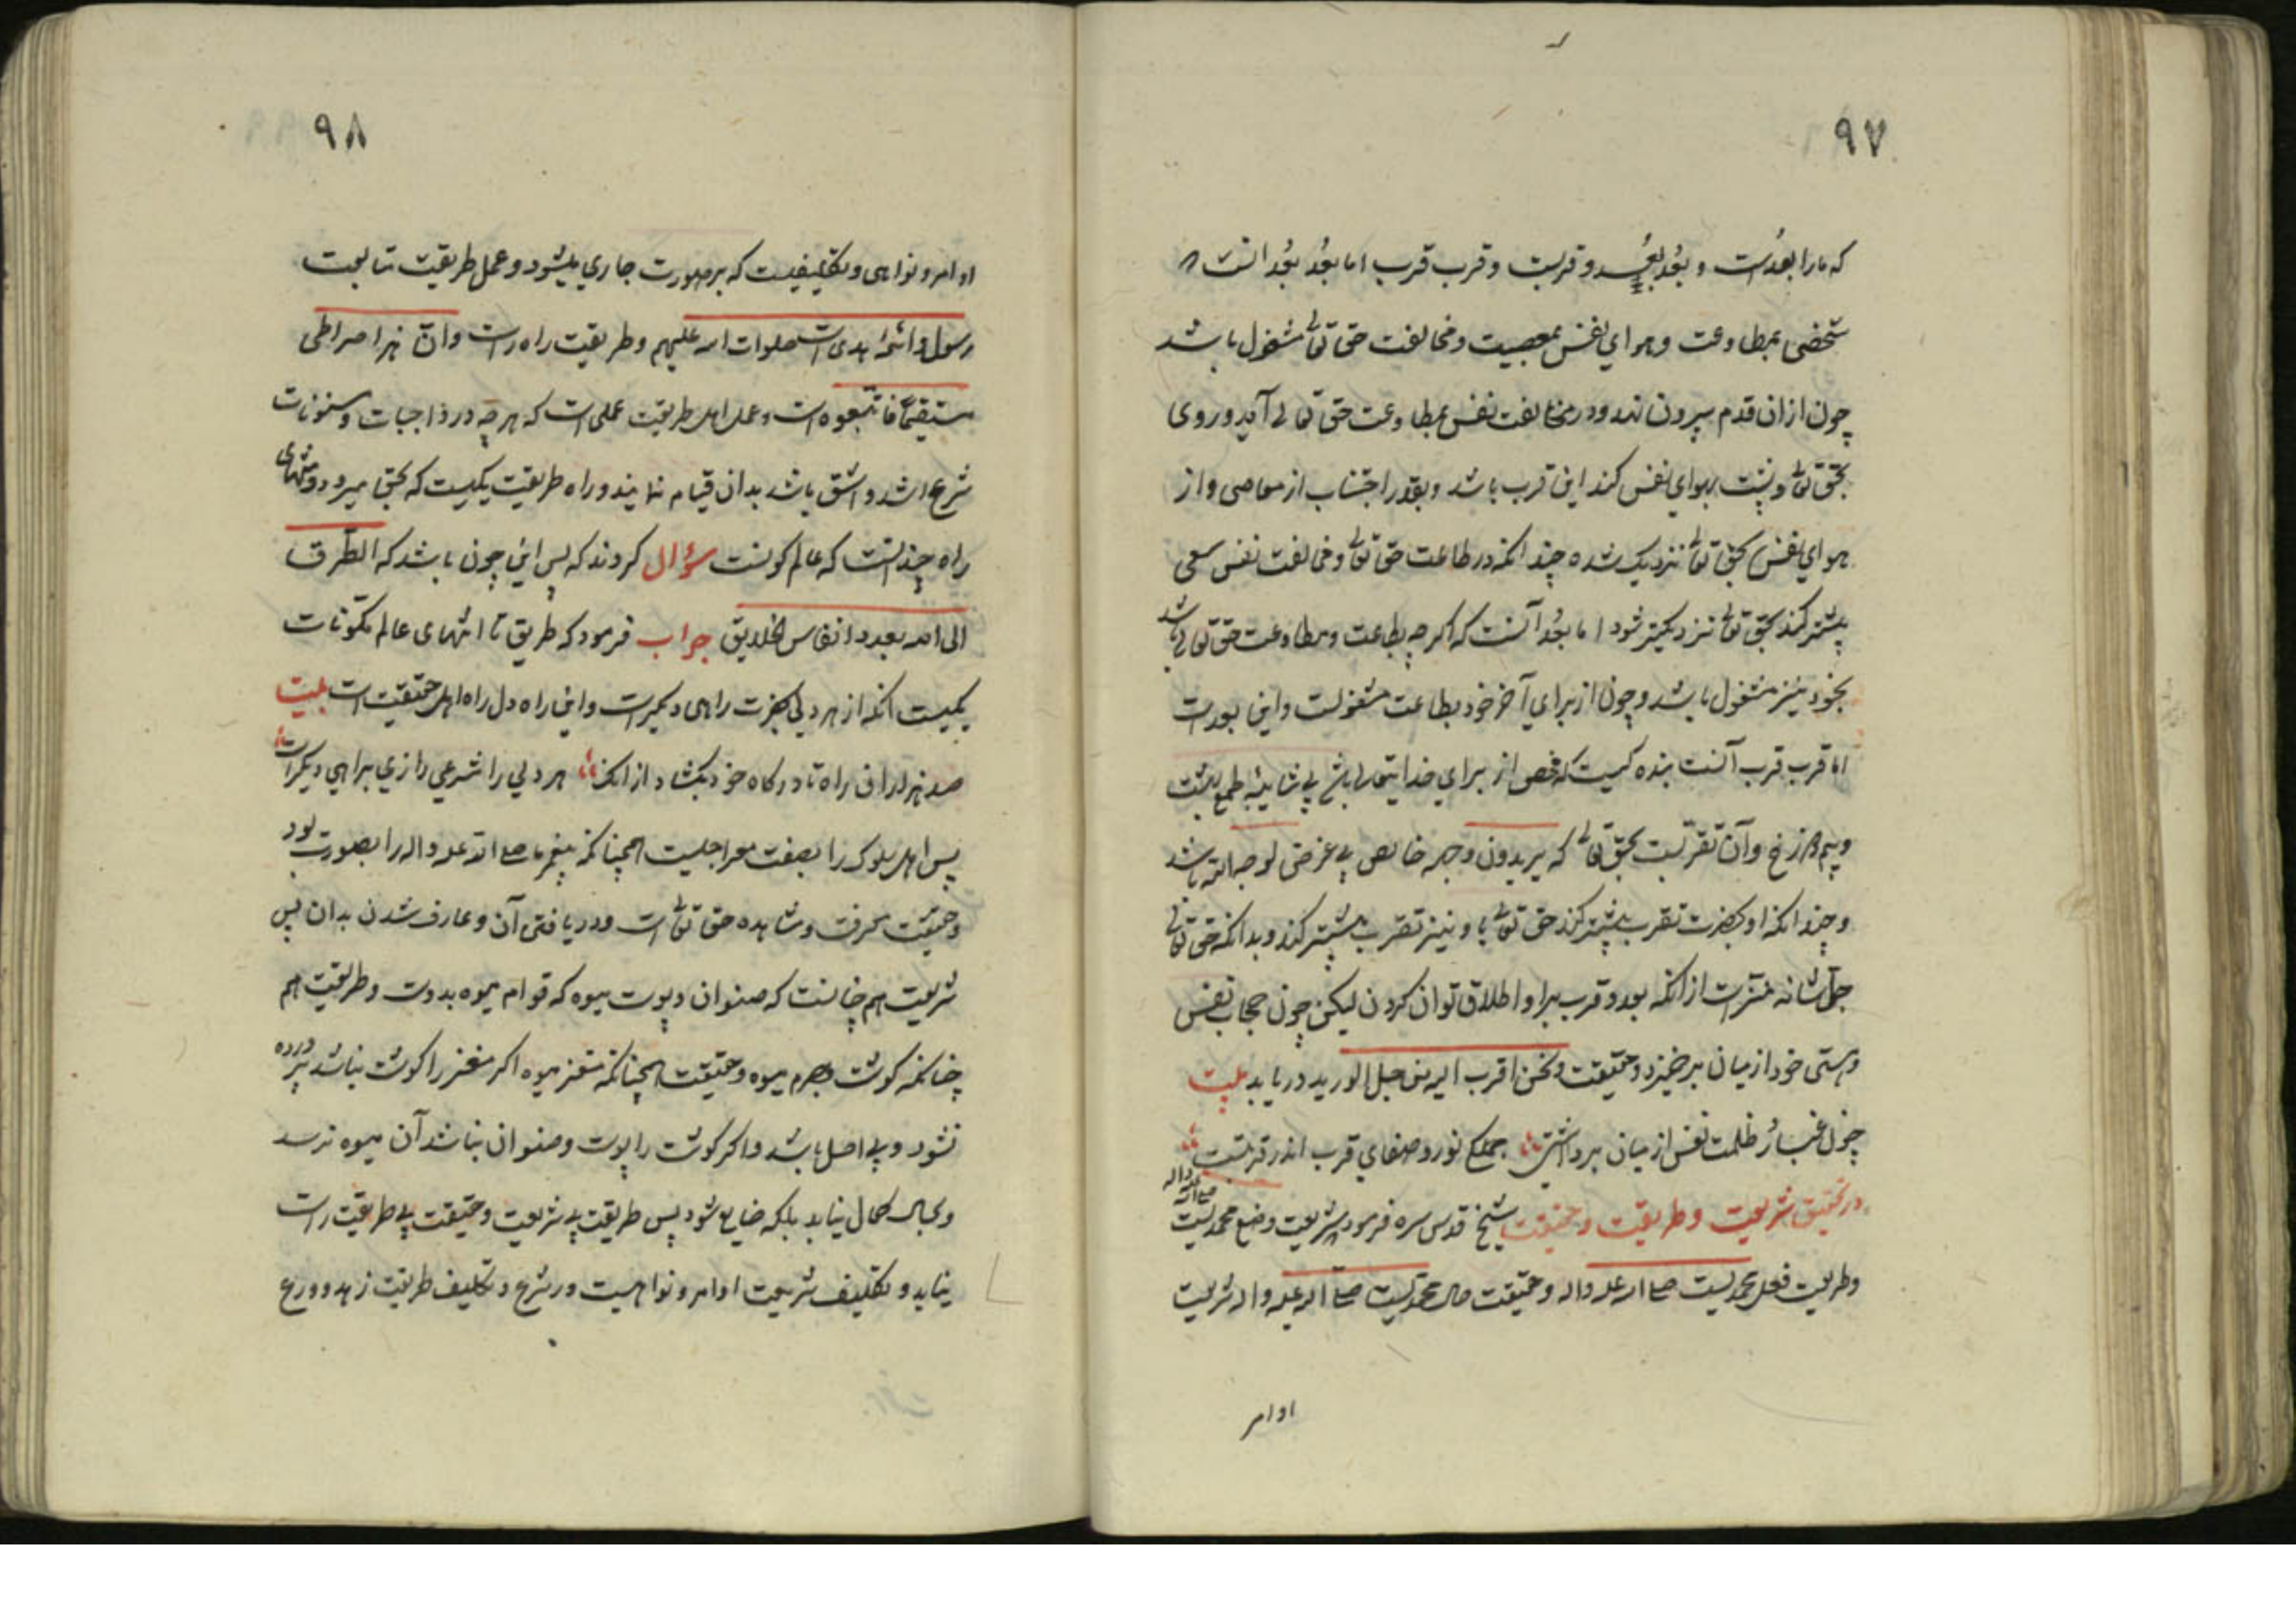 ۹۷
که ما را بعدست و بُعدِ بُعد و قربست و قرب قرب اما بُعدِ بُعد انست که
شخصی بمطاوعت و هوای نفس بمعصیت و مخالفت حق تعالی مشغول باشد
چون از ان قدم بیرون نهد و در مخالفت نفس بمطاوعت حق تعالی آید و روی
بحق تعالی و پشت بهوای نفس کند این قرب باشد و بقدر اجتناب از معاصی و از
هوای نفس بحق تعالی نزدیک شده چندانکه در طاعت حق تعالی و مخالفت نفس سعی
بیشتر کند بحق تعالی نزدیکتر شود اما بُعد آنست که اکرچه بطاعت و مطاوعت حق تعالی باشد
بخود نیز مشغول باشد و چون از برای آخر خود بطاعت مشغولست و این بعد است
اما قرب قرب آنست بنده کیست که مخصی از برای خدایتعالی باشد بی شایبهٔ طمع بهشت
و بیم دوزخ و آن تقربیست بحق تعالی که یریدون وجهه خالص بی غرضی لوجه الله باشد
و چندانکه او بحضرت تقرب بیشتر کند حق تعالی با و نیز تقرب بیشتر کند و بدانکه حق تعالی
جل شانه منزه است از انکه بعد و قرب برا و اطلاق توان کردن لیکن چون حجاب نفس
و هستی خود از میان برخیزد و حقیقت و نحن اقرب الیه من حبل الورید دریابد بیت
چون غبار ظلمت نفس از میان برداشتی جملکی نور و صفای قرب اندر قربتست
در تحقیق شریعت و طریقت و حقیقت شیخ قدس سره فرمود شریعت وضع محمدیست صلی الله علیه و اله
و طریقت فعل محمدیست صلی الله علیه و اله و حقیقت حال محمدیست صلی الله علیه و اله شریعت
اوامر
۹۸
اوامر و نواهی و تکلیفیست که بر صورت جاری میشود و عمل طریقت متابعت
رسول و ائمهٔ هدی است صلوات الله علیهم و طریقت راه راست و ان هذا صراطی
مستقیماً فاتبعوه است و عمل اهل طریقت عملی است که هرچه در واجبات و مسنونات
شرع اشد و اشق باشد بدان قیام نمایند و راه طریقت یکیست که بحق میرود و منتهای
راه چندانست که عالم کونست سؤال کردند که پس این چون باشد که الطرق
الی الله بعدد انفاس الخلایق جواب فرمود که طریق تا انتهای عالم مکونات
یکیست انکه از هر دلی بحضرت راهی دیکراست و این راه دل راه اهل حقیقت است بیت
صد هزاران راه تا درکاه خود بکشاد از انک هر دلی را شرعی رازی براهی دیکراست
پس اهل سلوک را بصفت معراجیست همچنانکه پیغمبر ما صلی الله علیه و اله را بصورت بود
و حقیقت معرفت و مشاهده حق تعالی است و دریافتی آن و عارف شدن بدان پس
شریعت هم چنانست که صنوان و پوست میوه که قوام میوه بدوست و طریقت هم
چنانکه کوشت و جرم میوه و حقیقت همچنانکه مغز میوه اکر مغز را کوشت نباشد پرورده
نشود و بی اصل باشد و اکر کوشت را پوست و صنوان نباشد آن میوه نرسد
و بحال کمال نیاید بلکه ضایع شود پس طریقت بی شریعت و حقیقت بی طریقت راست
نیاید و تکلیف شریعت اوامر و نواهیست و ر شرع و تکلیف طریقت زهد و ورع